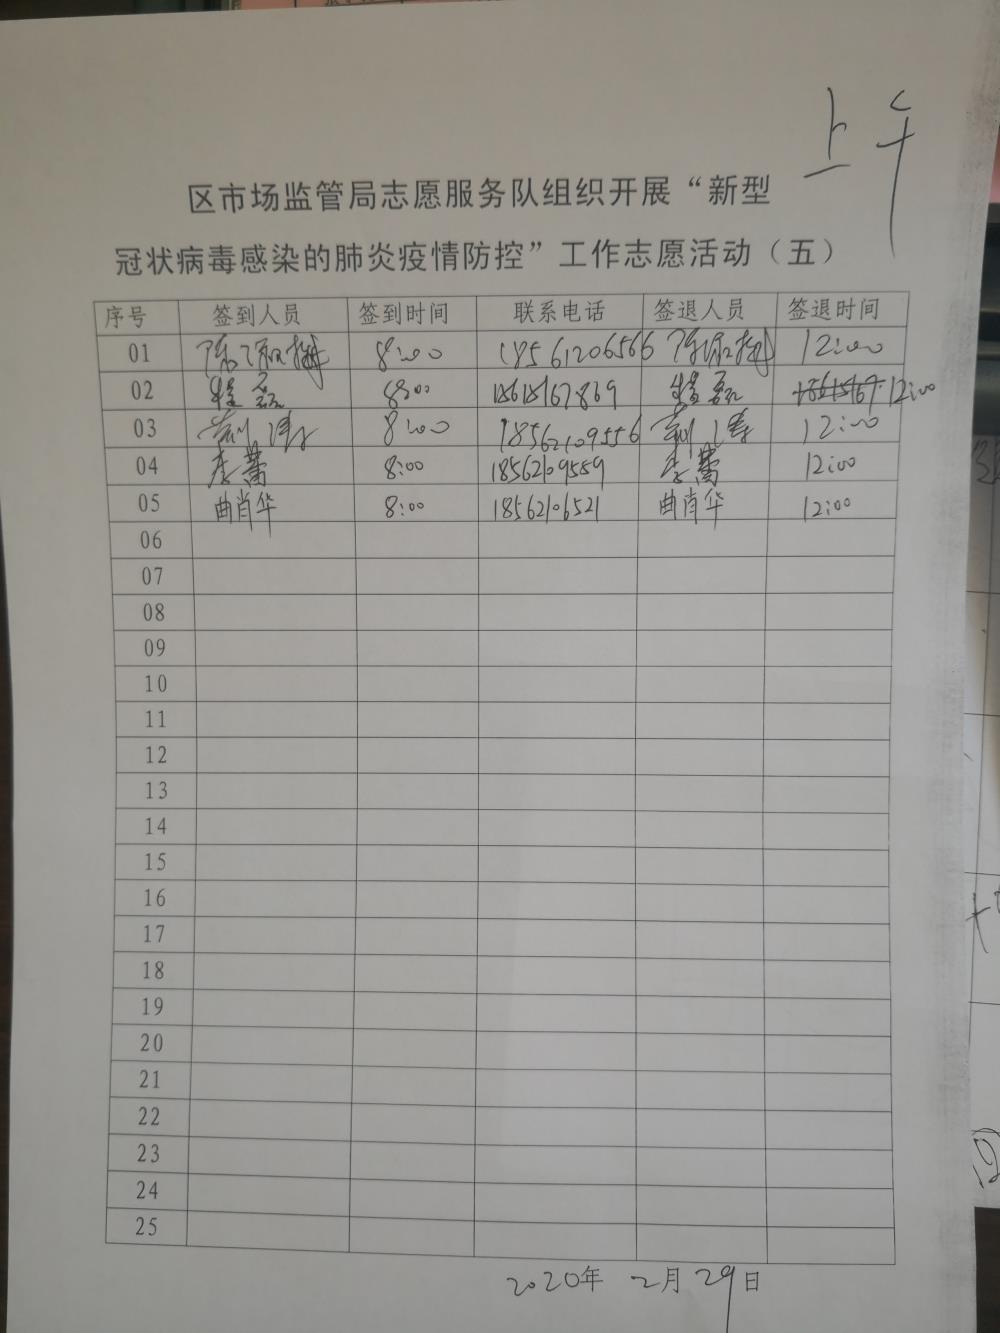 上午
区市场监管局志愿服务队组织开展“新型
冠状病毒感染的肺炎疫情防控”工作志愿活动（五）
序号 签到人员 签到时间 联系电话 签退人员 签退时间
01 陈 8:00 18561206566 陈 12:00
02 磊 8:00 18561567869 磊 12:00
03 8:00 18562109556 12:00
04 李蕾 8:00 18562109589 李蕾 12:00
05 曲肖华 8:00 18562106521 曲肖华 12:00
06
07
08
09
10
11
12
13
14
15
16
17
18
19
20
21
22
23
24
25
2020年 2月29日